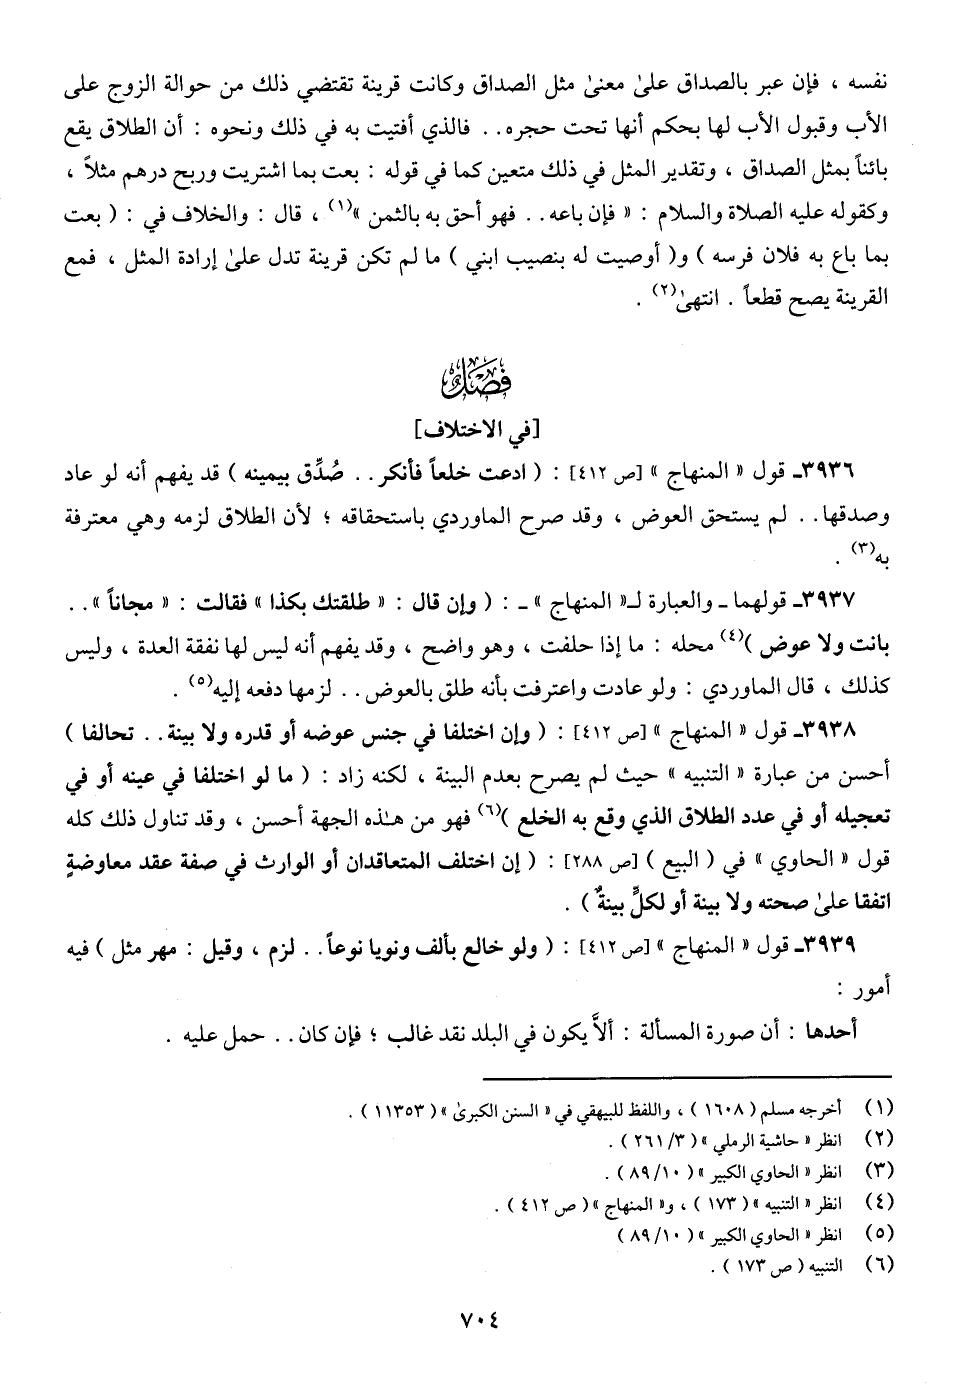 نفسه ، فإن عبر بالصداق علىٰ معنىٰ مثل الصداق وكانت قرينة تقتضي ذلك من حوالة الزوج على
الأب وقبول الأب لها بحكم أنها تحت حجره . . فالذي أفتيت به في ذلك ونحوه : أن الطلاق يقع
بائناً بمثل الصداق ، وتقدير المثل في ذلك متعين كما في قوله : بعت بما اشتريت وربح درهم مثلاً ،
وكقوله عليه الصلاة والسلام : « فإن باعه . . فهو أحق به بالثمن »(١) ، قال : والخلاف في : ( بعت
بما باع به فلان فرسه ) و( أوصيت له بنصيب ابني ) ما لم تكن قرينة تدل علىٰ إرادة المثل ، فمع
القرينة يصح قطعاً . انتهىٰ(٢) .
فصل
[في الاختلاف]
٣٩٣٦ـ قول « المنهاج » [ص ٤١٢] : ( ادعت خلعاً فأنكر . . صُدِّق بيمينه ) قد يفهم أنه لو عاد
وصدقها . . لم يستحق العوض ، وقد صرح الماوردي باستحقاقه ؛ لأن الطلاق لزمه وهي معترفة
به(٣) .
٣٩٣٧ـ قولهما ـ والعبارة لـ« المنهاج » ـ : ( وإن قال : « طلقتك بكذا » فقالت : « مجاناً » . .
بانت ولا عوض )(٤) محله : ما إذا حلفت ، وهو واضح ، وقد يفهم أنه ليس لها نفقة العدة ، وليس
كذلك ، قال الماوردي : ولو عادت واعترفت بأنه طلق بالعوض . . لزمها دفعه إليه(٥) .
٣٩٣٨ـ قول « المنهاج » [ص ٤١٢] : ( وإن اختلفا في جنس عوضه أو قدره ولا بينة . . تحالفا )
أحسن من عبارة « التنبيه » حيث لم يصرح بعدم البينة ، لكنه زاد : ( ما لو اختلفا في عينه أو في
تعجيله أو في عدد الطلاق الذي وقع به الخلع )(٦) فهو من هـٰذه الجهة أحسن ، وقد تناول ذلك كله
قول « الحاوي » في ( البيع ) [ص ٢٨٨] : ( إن اختلف المتعاقدان أو الوارث في صفة عقد معاوضةٍ
اتفقا علىٰ صحته ولا بينة أو لكلٍّ بينةٌ ) .
٣٩٣٩ـ قول « المنهاج » [ص ٤١٢] : ( ولو خالع بألف ونويا نوعاً . . لزم ، وقيل : مهر مثل ) فيه
أمور :
أحدها : أن صورة المسألة : ألاَّ يكون في البلد نقد غالب ؛ فإن كان . . حمل عليه .
(١) أخرجه مسلم ( ١٦٠٨ ) ، واللفظ للبيهقي في « السنن الكبرىٰ » ( ١١٣٥٣ ) .
(٢) انظر « حاشية الرملي » ( ٢٦١/٣ ) .
(٣) انظر « الحاوي الكبير » ( ٨٩/١٠ ) .
(٤) انظر « التنبيه » ( ١٧٣ ) ، و« المنهاج » ( ص ٤١٢ ) .
(٥) انظر « الحاوي الكبير » ( ٨٩/١٠ )
(٦) التنبيه ( ص ١٧٣ ) .
٧٠٤